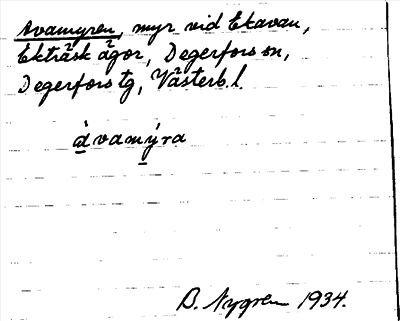 Avamyren, myr vid Ekavan,
Ekträsk ägor, Degerfors sn,
Degerfors tg, Västerb. l.
àvamýra
B. Nygren 1934.